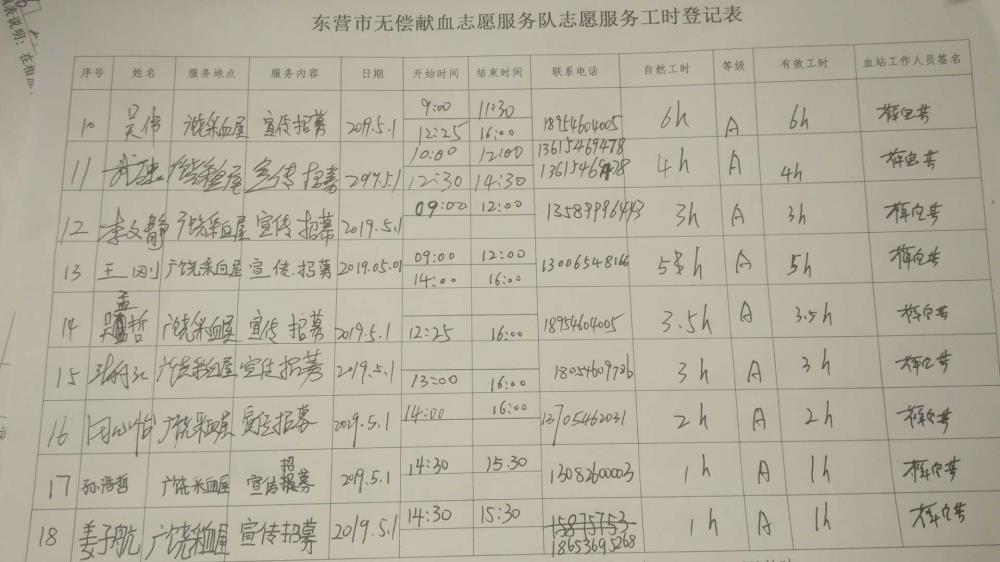 表说明：在相应
东营市无偿献血志愿服务队志愿服务工时登记表
序号 姓名 服务地点 服务内容 日期 开始时间 结束时间 联系电话 自然工时 等级 有效工时 血站工作人员签名
10 吴伟 广饶采血屋 宣传招募 2019.5.1 9:00 11:30 18954604005 6h A 6h
12:25 16:00
11 广饶采血屋 宣传招募 2019.5.1 10:00 12:00 13615469478 4h A 4h
12:30 14:30
12 李文静 广饶采血屋 宣传招募 2019.5.1 09:00 12:00 13589996443 3h A 3h
13 王刚 广饶采血屋 宣传招募 2019.05.01 09:00 12:00 13006548166 5h A 5h
14:00 16:00
14 吴孟哲 广饶采血屋 宣传招募 2019.5.1 12:25 16:00 18954604005 3.5h A 3.5h
15 广饶采血屋 宣传招募 2019.5.1 13:00 16:00 3h A 3h
16 广饶采血屋 宣传招募 2019.5.1 14:00 16:00 13705462031 2h A 2h
17 孙浩哲 广饶采血屋 宣传招募 2019.5.1 14:30 15.30 13082600003 1h A 1h
18 姜子航 广饶采血屋 宣传招募 2019.5.1 14:30 15:30 15875753 1h A 1h
18653695268